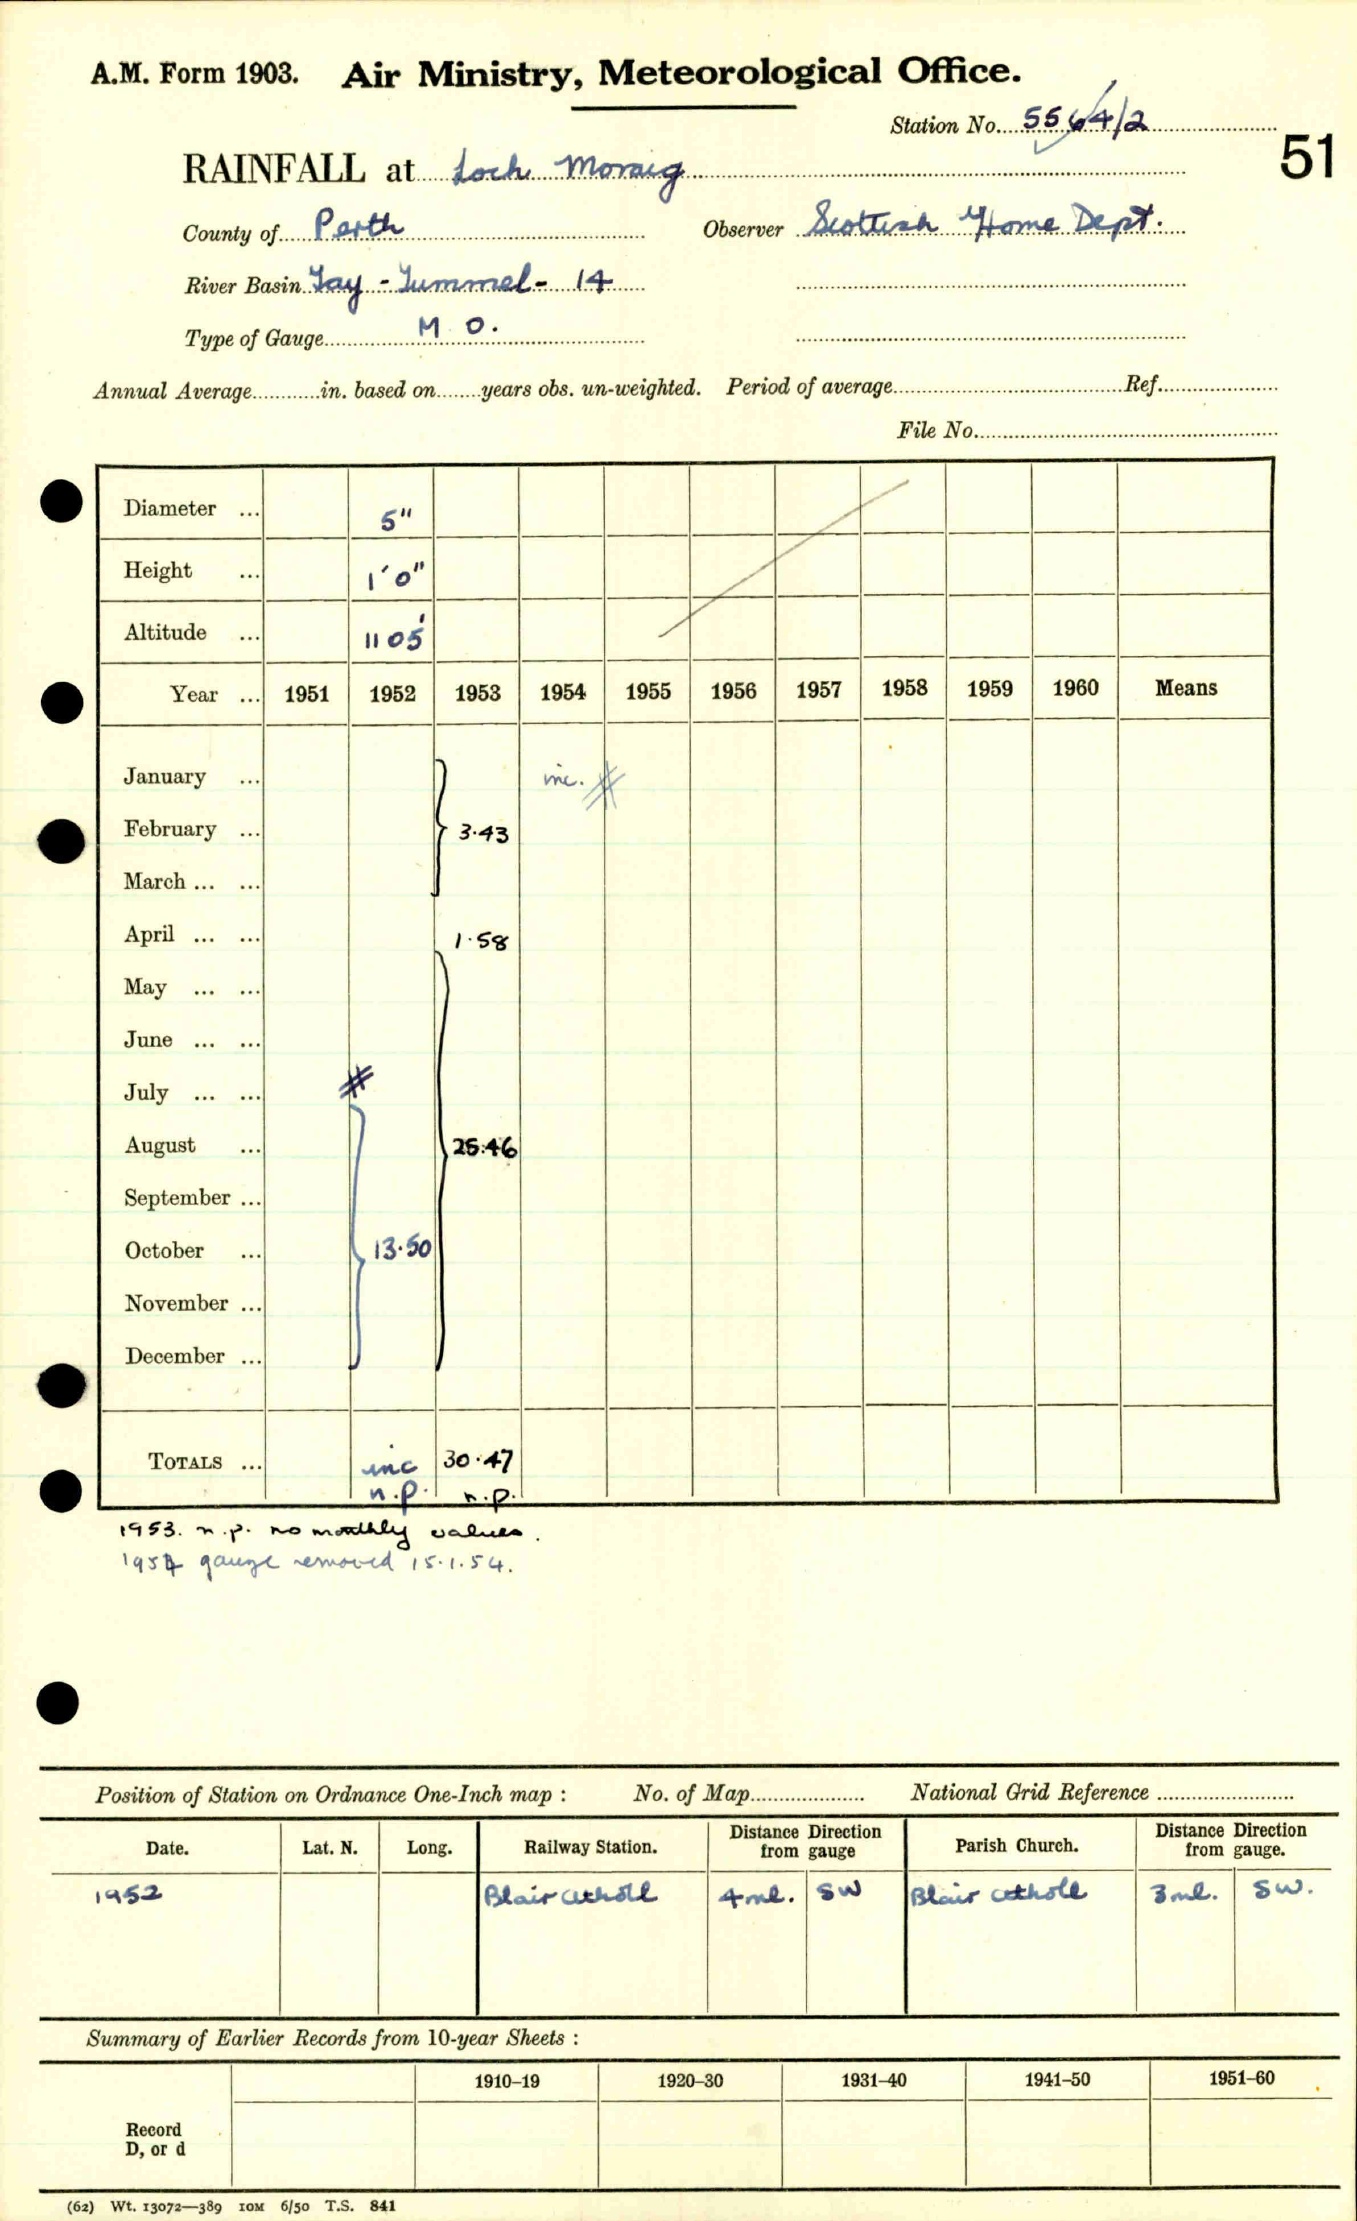 A.M. Form 1903. Air Ministry, Meteorological Office.
Station No. 5564/2
51
RAINFALL at Loch Moraig
County of Perth Observer Scottish Home Dept.
River Basin Tay - Tummel - 14
Type of Gauge M O.
Annual Average in. based on years obs. un-weighted. Period of average Ref.
File No.
Diameter ... 5"
Height ... 1'0"
Altitude ... 1105'
Year ... 1951 1952 1953 1954 1955 1956 1957 1958 1959 1960 Means
January ... inc. #
February ... 3.43
March ... ...
April ... ... 1.58
May ... ...
June ... ...
July ... ... #
August ... 25.46
September ...
October ... 13.50
November ...
December ...
TOTALS ... inc 30.47
n.p. n.p.
1953. n.p. no monthly values.
1954 gauge removed 15.1.54.
Position of Station on Ordnance One-Inch map : No. of Map National Grid Reference
Date. Lat. N. Long. Railway Station. Distance Direction from gauge Parish Church. Distance Direction from gauge.
1952 Blair Atholl 4 ml. SW Blair Atholl 3 ml. SW.
Summary of Earlier Records from 10-year Sheets :
1910–19 1920–30 1931–40 1941–50 1951–60
Record
D, or d
(62) Wt. 13072—389 10M 6/50 T.S. 841